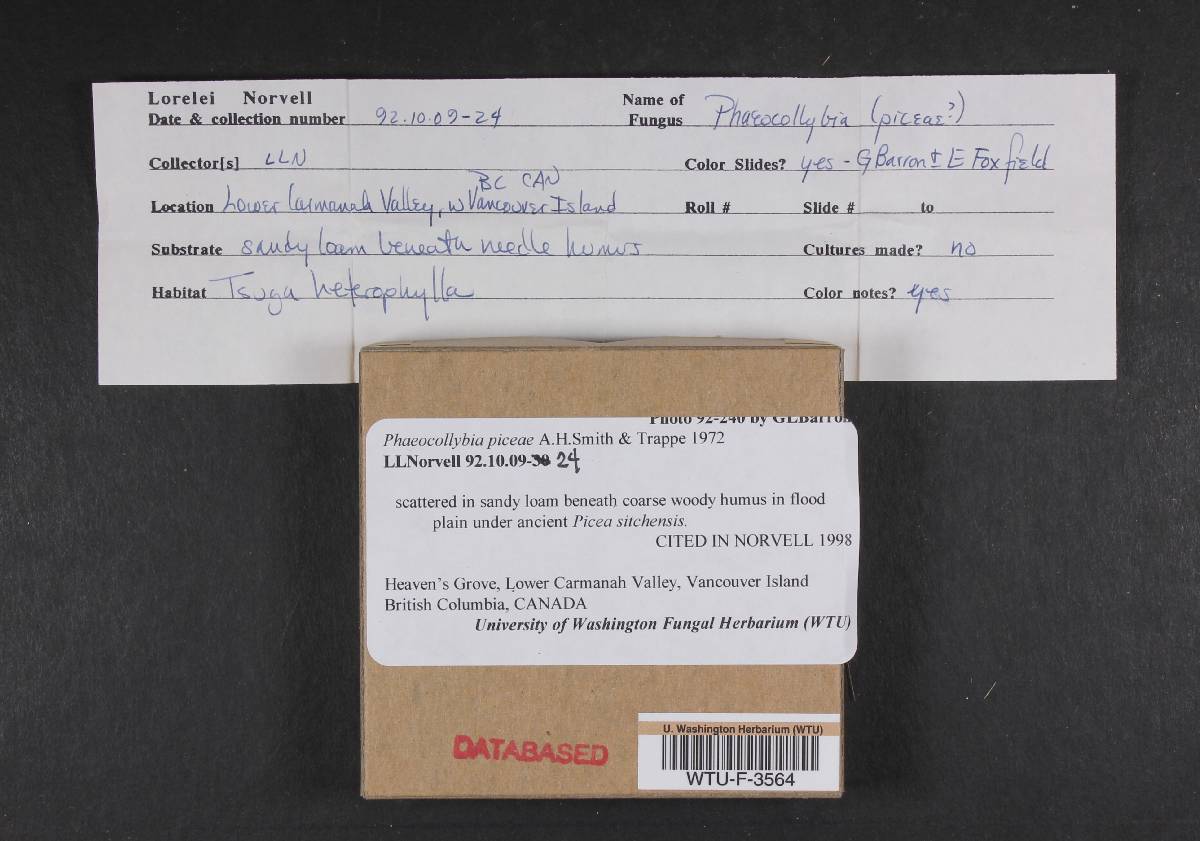 Lorelei Norvell
Date & collection number 92.10.09-24
Name of Fungus Phaeocollybia (piceae?)
Collector[s] LLN
Color Slides? yes - G Barron + E Foxfield
BC CAN
Location Lower Carmanah Valley, W Vancouver Island
Roll # Slide # to
Substrate sandy loam beneath needle humus
Cultures made? no
Habitat Tsuga heterophylla
Color notes? yes
Photo 92-240 by GLBarron
Phaeocollybia piceae A.H.Smith & Trappe 1972
LLNorvell 92.10.09- 24
scattered in sandy loam beneath coarse woody humus in flood
plain under ancient Picea sitchensis.
CITED IN NORVELL 1998
Heaven's Grove, Lower Carmanah Valley, Vancouver Island
British Columbia, CANADA
University of Washington Fungal Herbarium (WTU)
DATABASED
U. Washington Herbarium (WTU)
WTU-F-3564